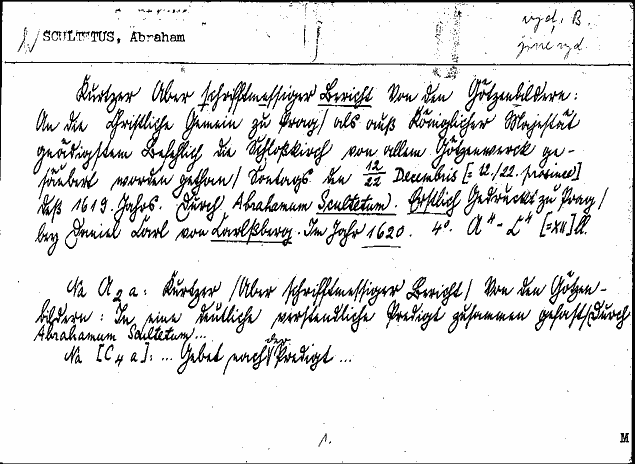 vyd. B.
jiné vyd.
SCULTETUS, Abraham
Kurtzer Aber schrifftmessiger Bericht Von den Götzenbildern:
An die Christliche Gemein zu Prag/ als auß Königlicher Majestät
gnädigstem Befehlich die Schloßkirch von allem Götzenwerck ge-
säubert worden gethan/ Sontags den 12/22 Decembris [= 12./22. prosince]
deß 1619. Jahrs. Durch Abrahamum Scultetum. Erstlich Gedruckt zu Prag/
bey Daniel Carl von Carlßberg. Im Jahr 1620. 4° A⁴ - C⁴ [=XII] ll.
Na A2a: Kurtzer/Aber schrifftmessiger Bericht/ Von den Götzen-
bildern: In eine deutliche verstendliche Predigt zusammen gefast/Durch
Abrahamum Scultetum...
Na [C4a]: ... Gebet nach der Predigt ...
1.
M